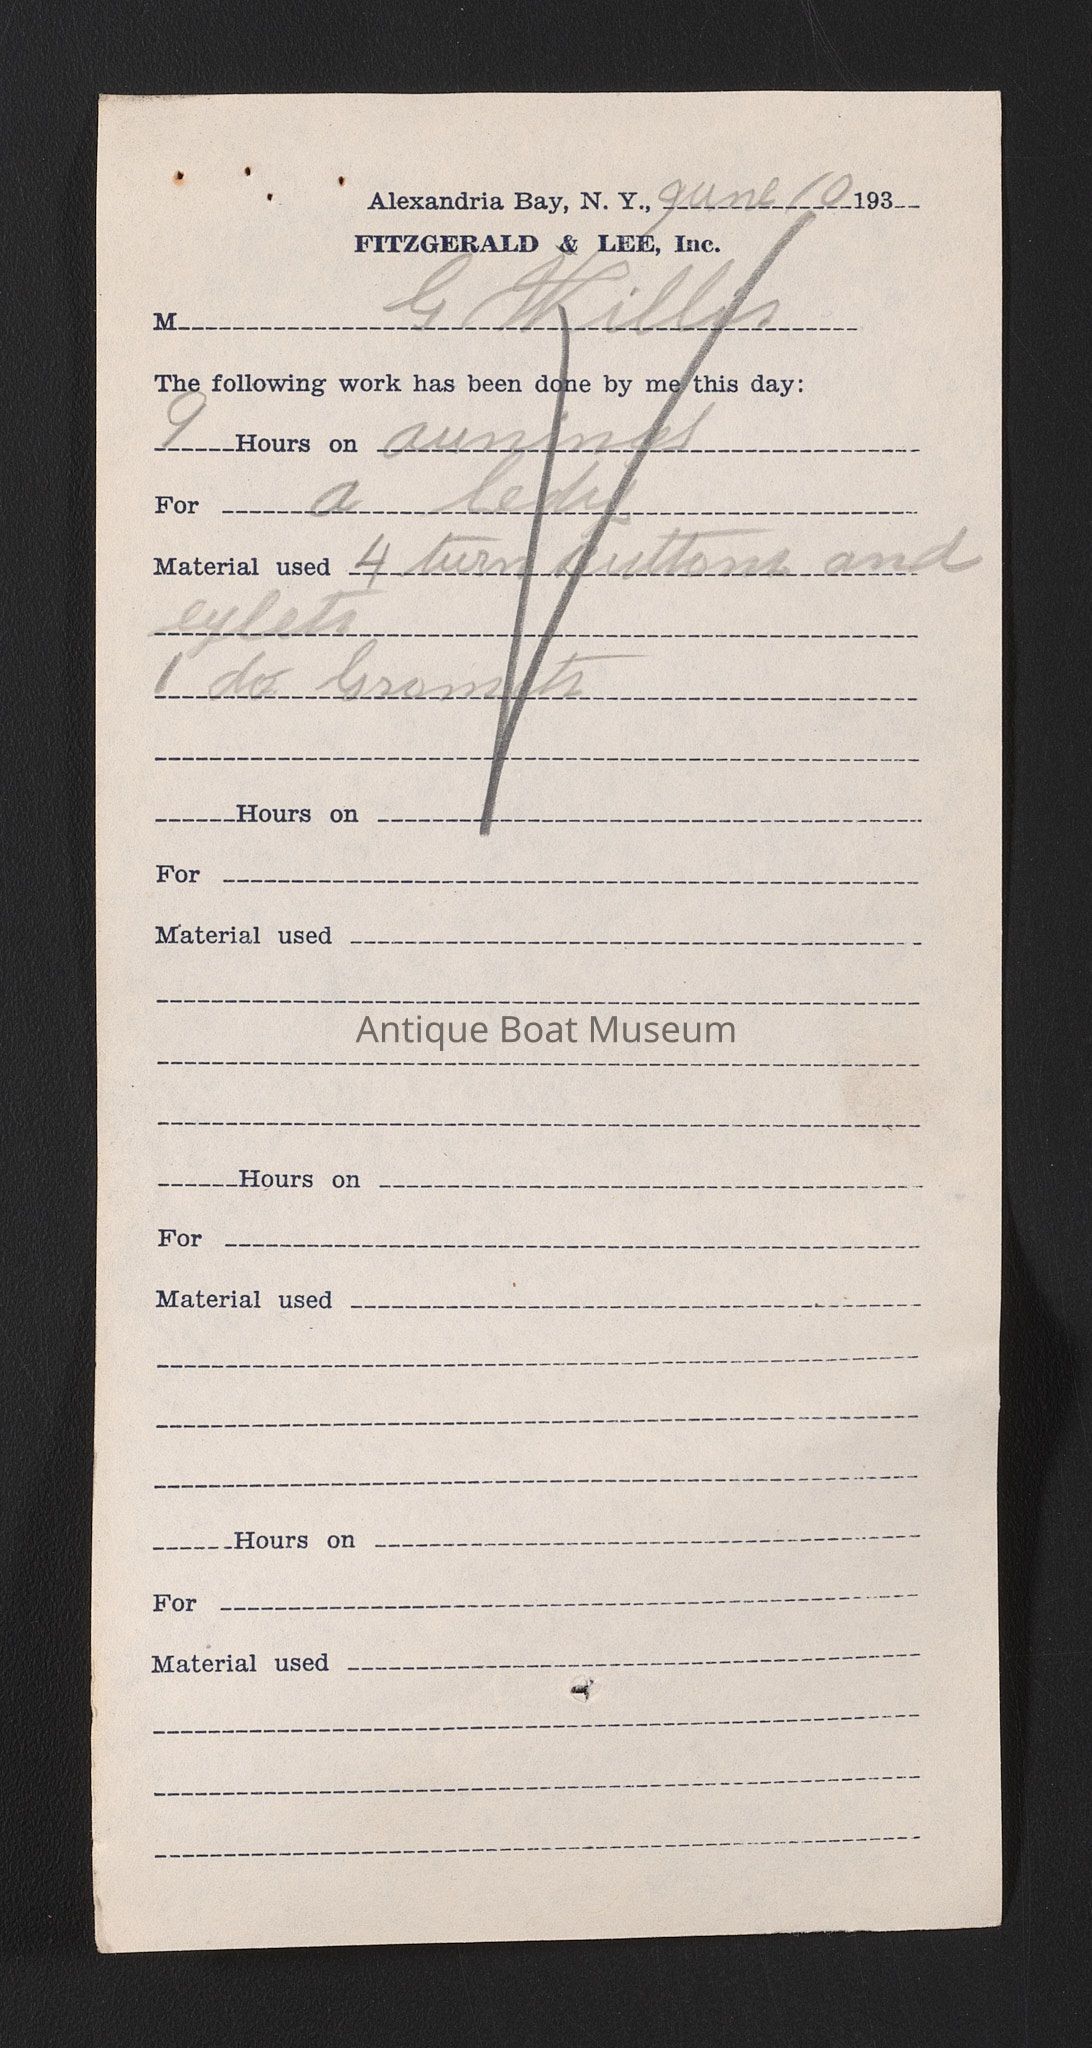 Alexandria Bay, N. Y., June 10 193
FITZGERALD & LEE, Inc.
M G Willis
The following work has been done by me this day:
9 Hours on awnings
For a
Material used 4 turn buttons and
eylets
1 do Gromets
Hours on
For
Material used
Antique Boat Museum
Hours on
For
Material used
Hours on
For
Material used